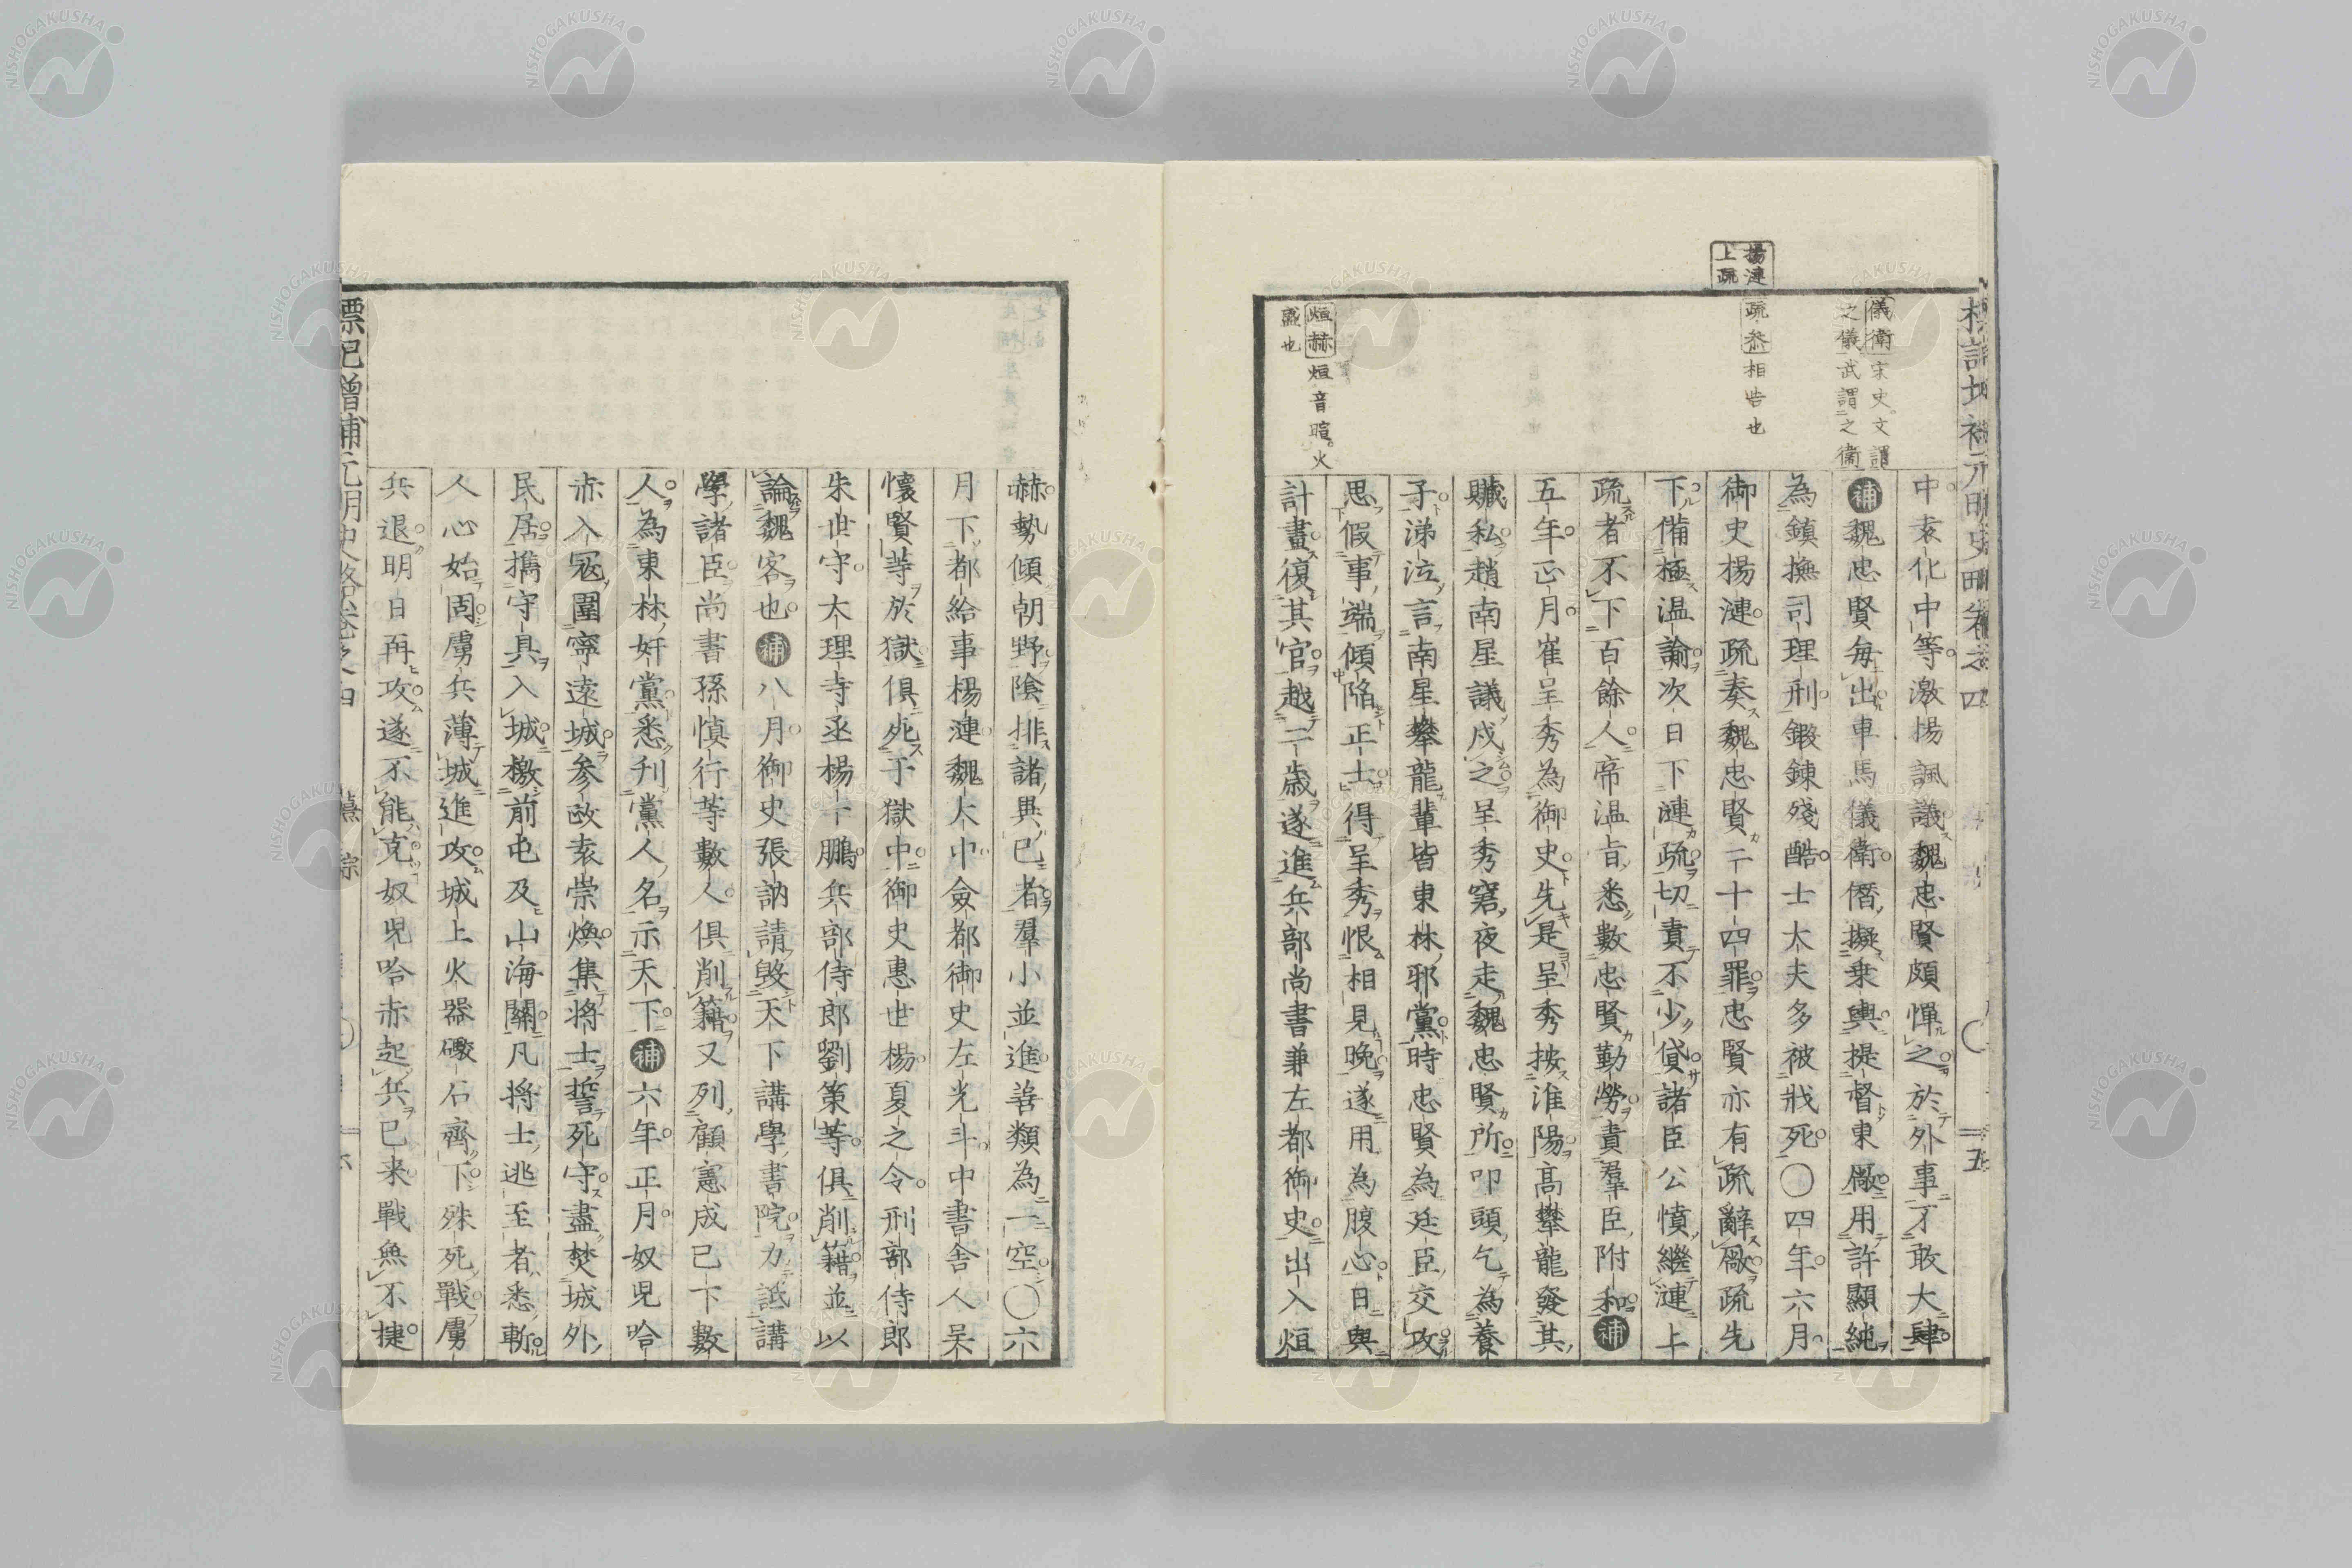 楊漣
上疏
儀衛宋史文謂
之儀武謂之衛
疏叅相告也
烜赫烜音暄火
盛也
中袁化中等激揚諷議魏忠賢頗憚之於外事才敢大肆
補魏忠賢毎出車馬儀衛僭擬乗輿提督東厰用許顯純
為鎮撫司理刑鍜鍊殘酷士大夫多被戕死〇四年六月
御史楊漣疏奏魏忠賢二十四罪忠賢亦有疏辭厰疏先
下備極温諭次日下漣疏切責不少貸諸臣公憤繼漣上
疏者不下百餘人帝温旨悉數忠賢勤勞責羣臣附和補
五年正月崔呈秀為御史先是呈秀按淮陽髙攀龍發其
贓私趙南星議戍之呈秀窘夜走魏忠賢所叩頭乞為養
子涕泣言南星攀龍輩皆東林邪黨時忠賢為廷臣交攻
思假事端傾陷正士得呈秀恨相見晩遂用為腹心日與
計畫復其官越二歳遂進兵部尚書兼左都御史出入烜
赫勢傾朝野陰排諸異已者羣小並進善類為一空〇六
月下都給事楊漣魏大中僉都御史左光斗中書舎人呉
懷賢等於獄俱死于獄中御史惠世楊夏之令刑部侍郎
朱世守大理寺丞楊一鵬兵部侍郎劉策等俱削籍並以
論魏客也補八月御史張訥請毀天下講學書院力詆講
學諸臣尚書孫慎行等數人俱削籍又列顧憲成已下數
人為東林奸黨悉刋黨人名示天下補六年正月奴兒哈
赤入冦圍寧遠城参政袁崇煥集將士誓死守盡焚城外
民居携守具入城檄前屯及山海關凡將士逃至者悉斬
人心始固虜兵薄城進攻城上火器礮石齊下殊死戰虜
兵退明日再攻遂不能克奴兒哈赤起兵已来戰無不捷